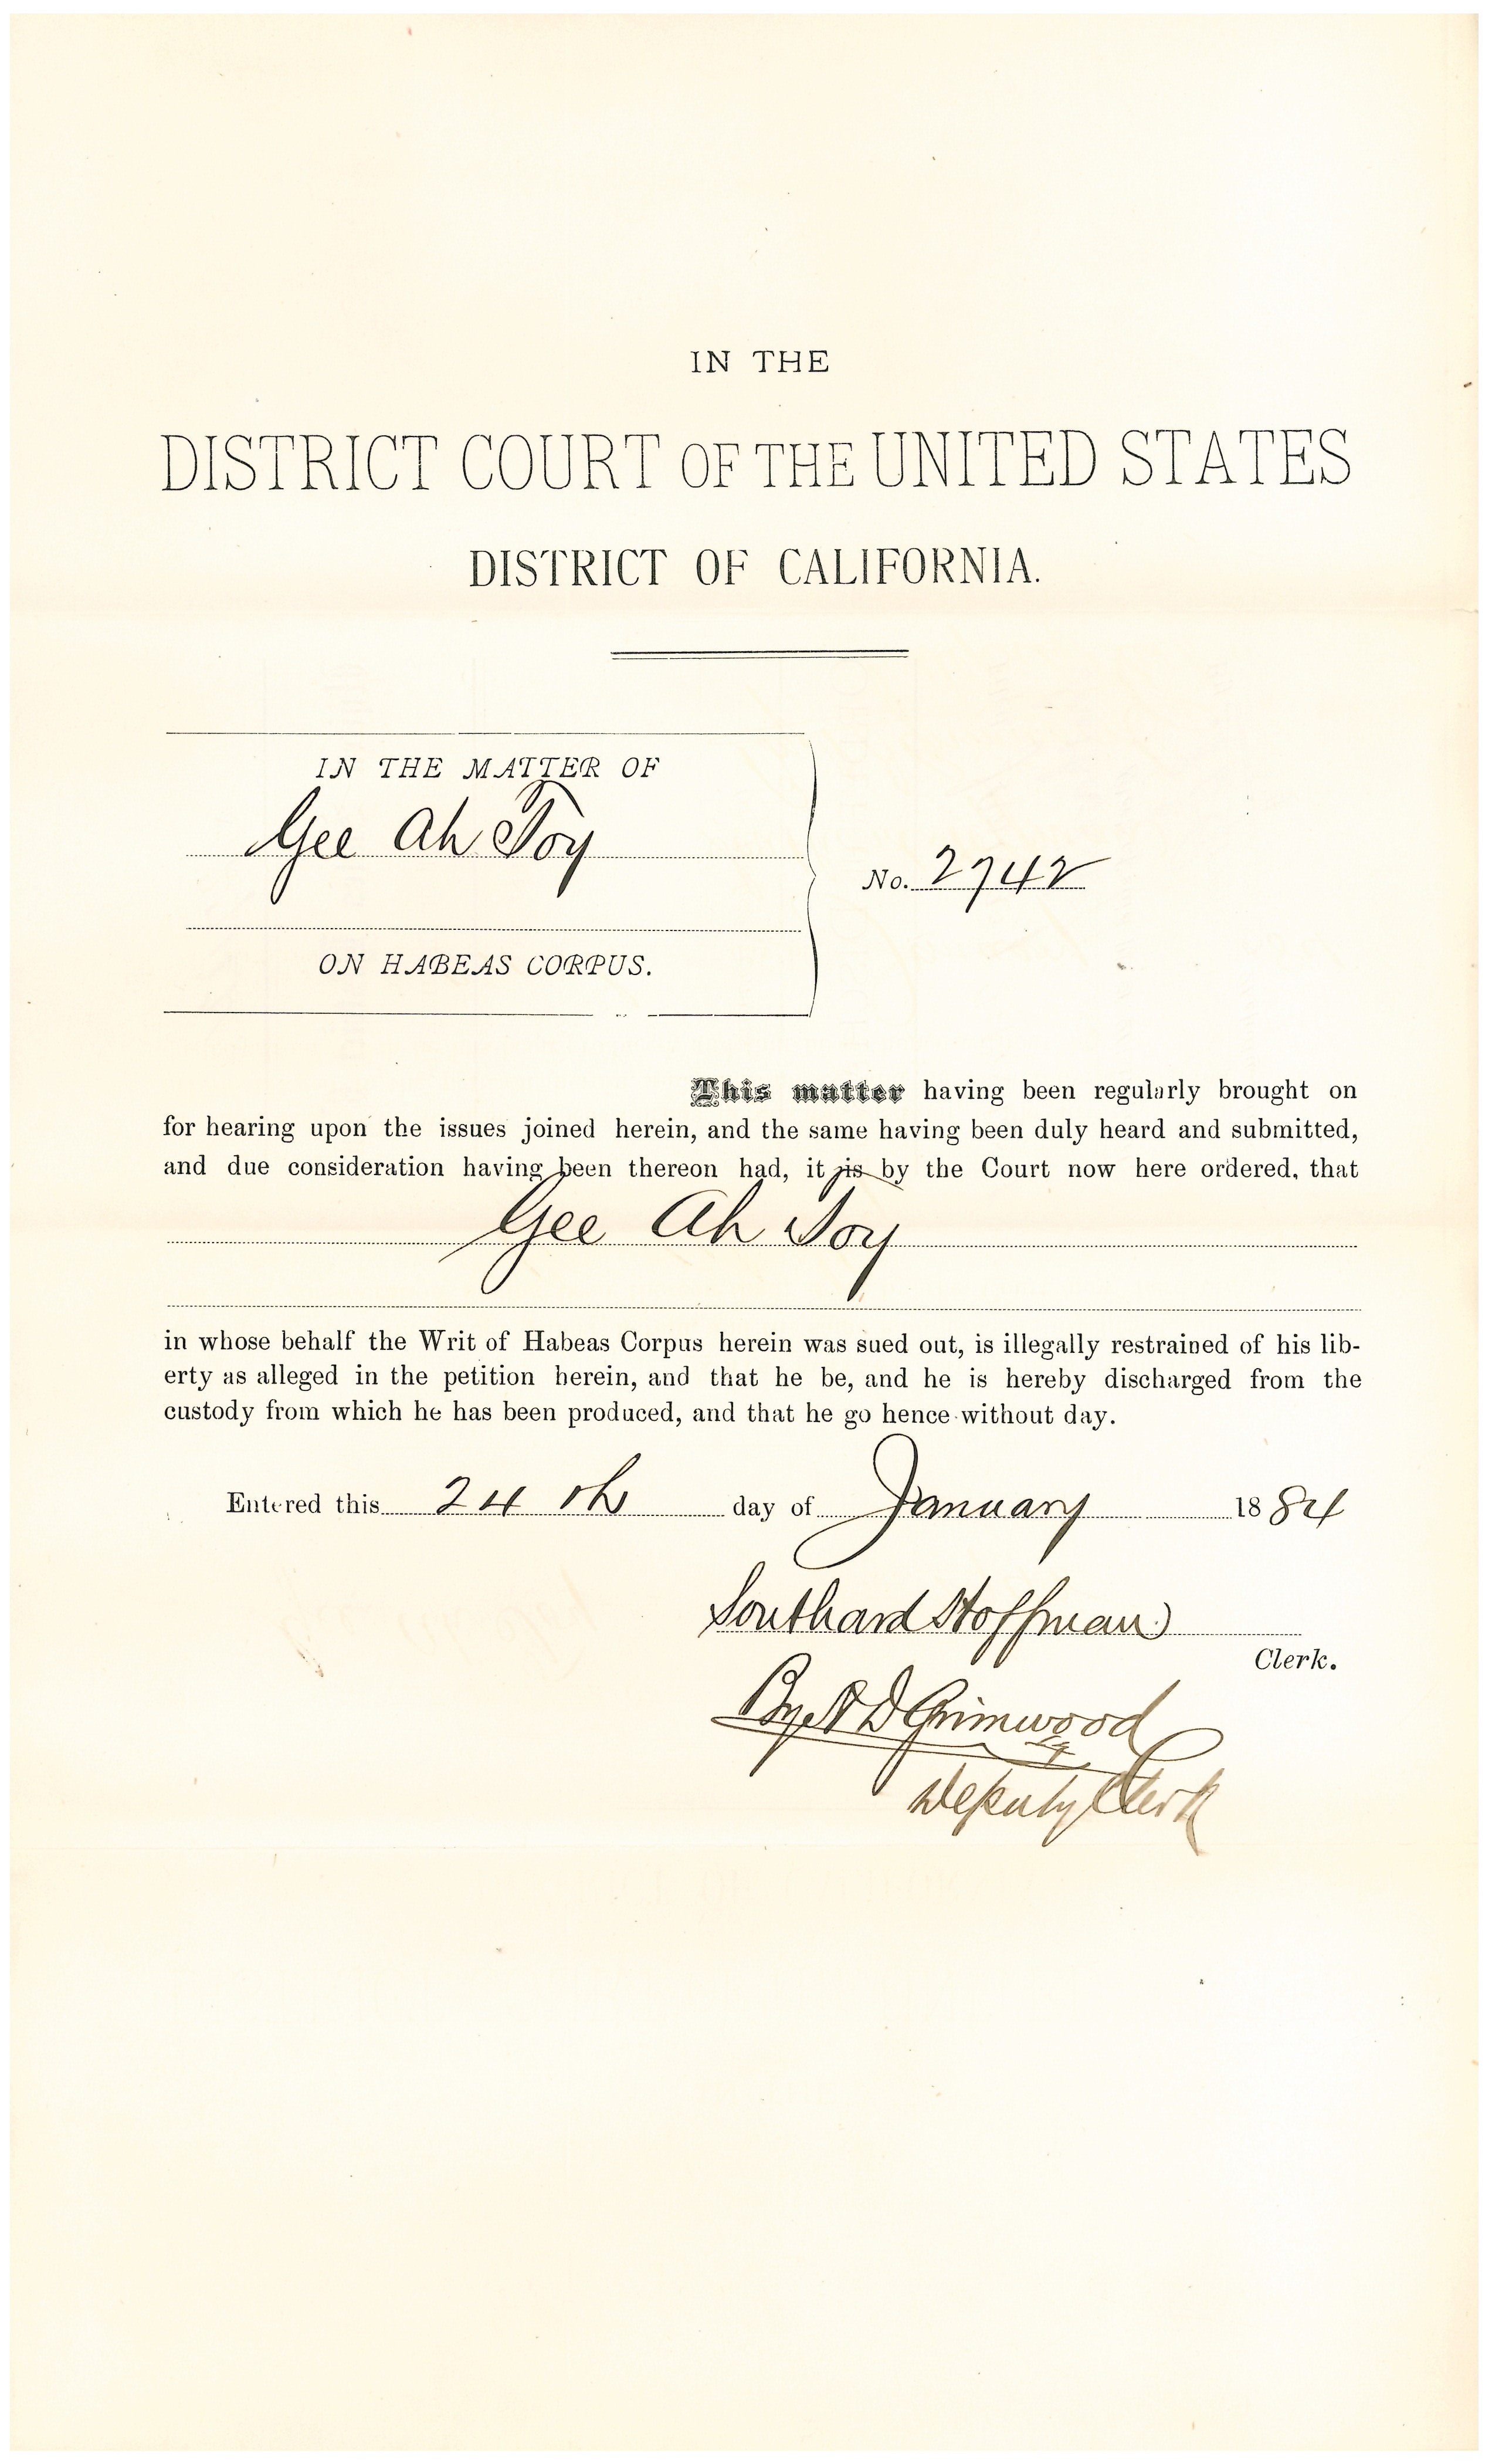 IN THE
DISTRICT COURT OF THE UNITED STATES
DISTRICT OF CALIFORNIA.
IN THE MATTER OF
Gee Ah Toy
No. 2742
ON HABEAS CORPUS.
This matter having been regularly brought on
for hearing upon the issues joined herein, and the same having been duly heard and submitted,
and due consideration having been thereon had, it is by the Court now here ordered, that
Gee Ah Toy
in whose behalf the Writ of Habeas Corpus herein was sued out, is illegally restrained of his lib-
erty as alleged in the petition herein, and that he be, and he is hereby discharged from the
custody from which he has been produced, and that he go hence without day.
Entered this 24th day of January 1884
Southard Hoffman
Clerk.
By D Grimwood
Deputy Clerk